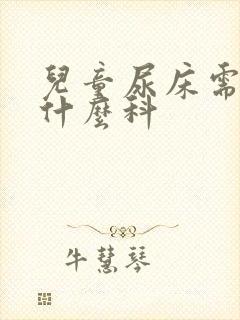 兒童尿床需
什麼科
牛慧琴